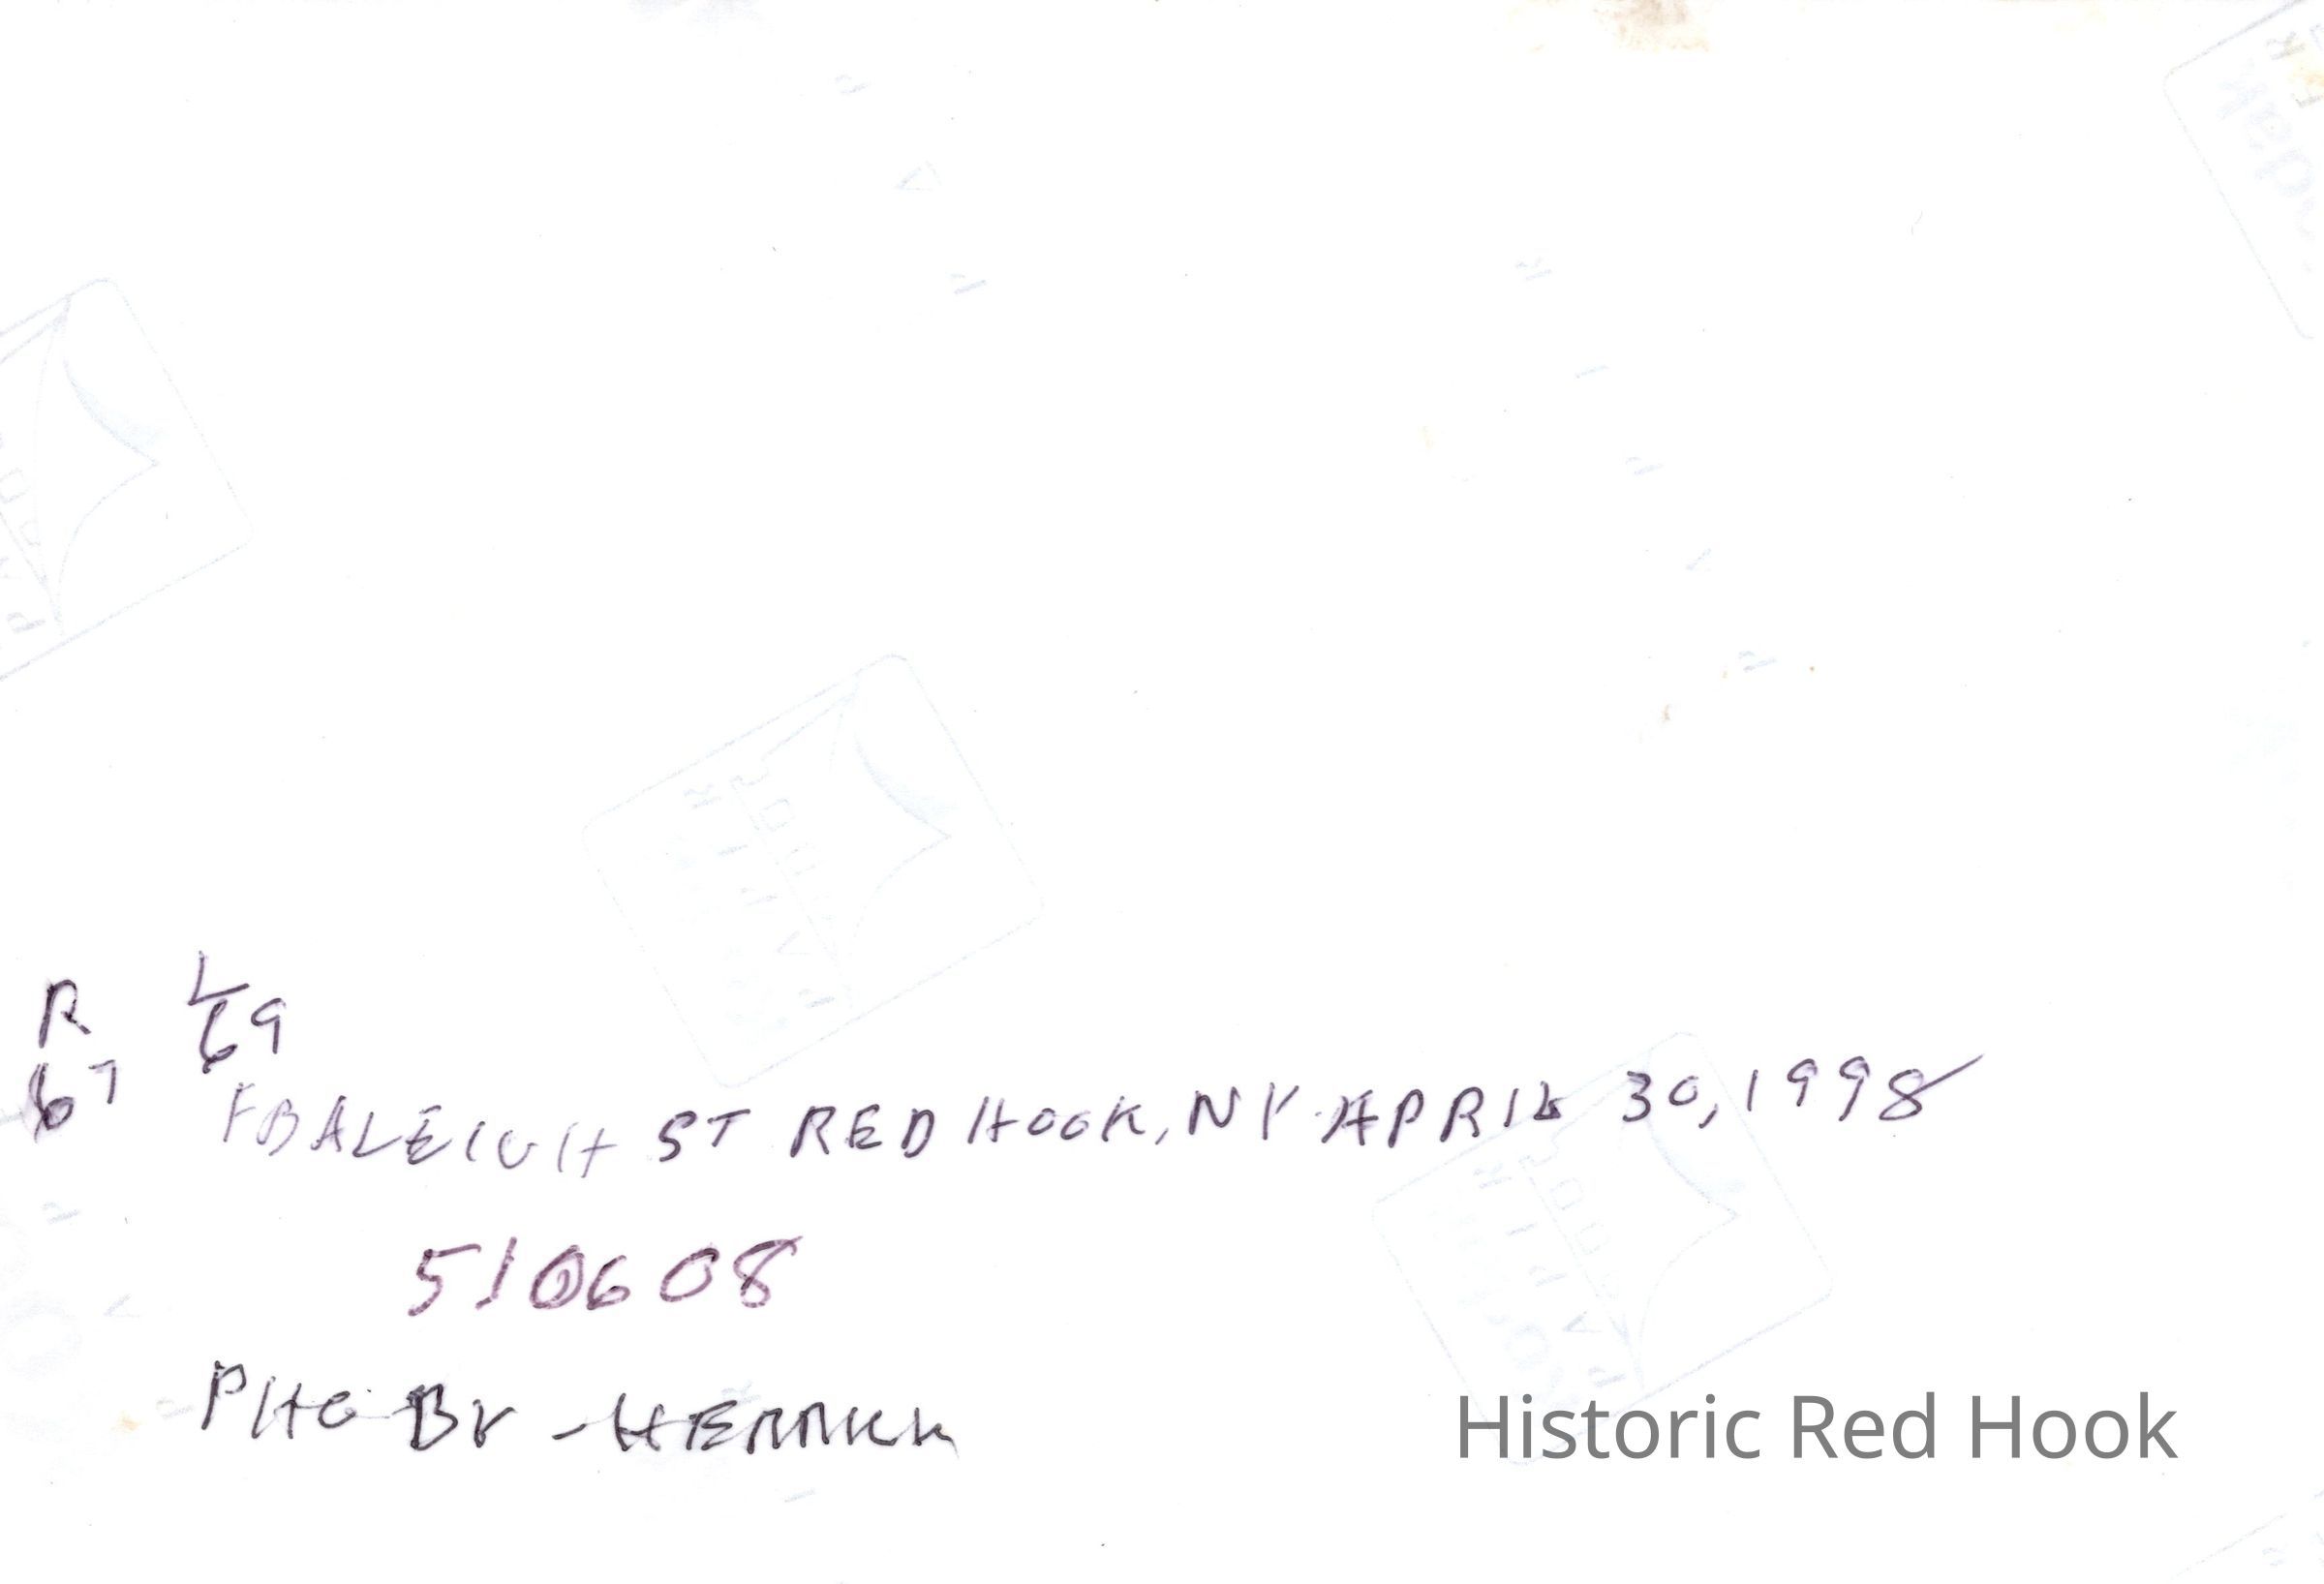 R L
67 69
FRALEIGH ST RED HOOK, NY APRIL 30, 1998
510608
PHO BY HERRICK
Historic Red Hook